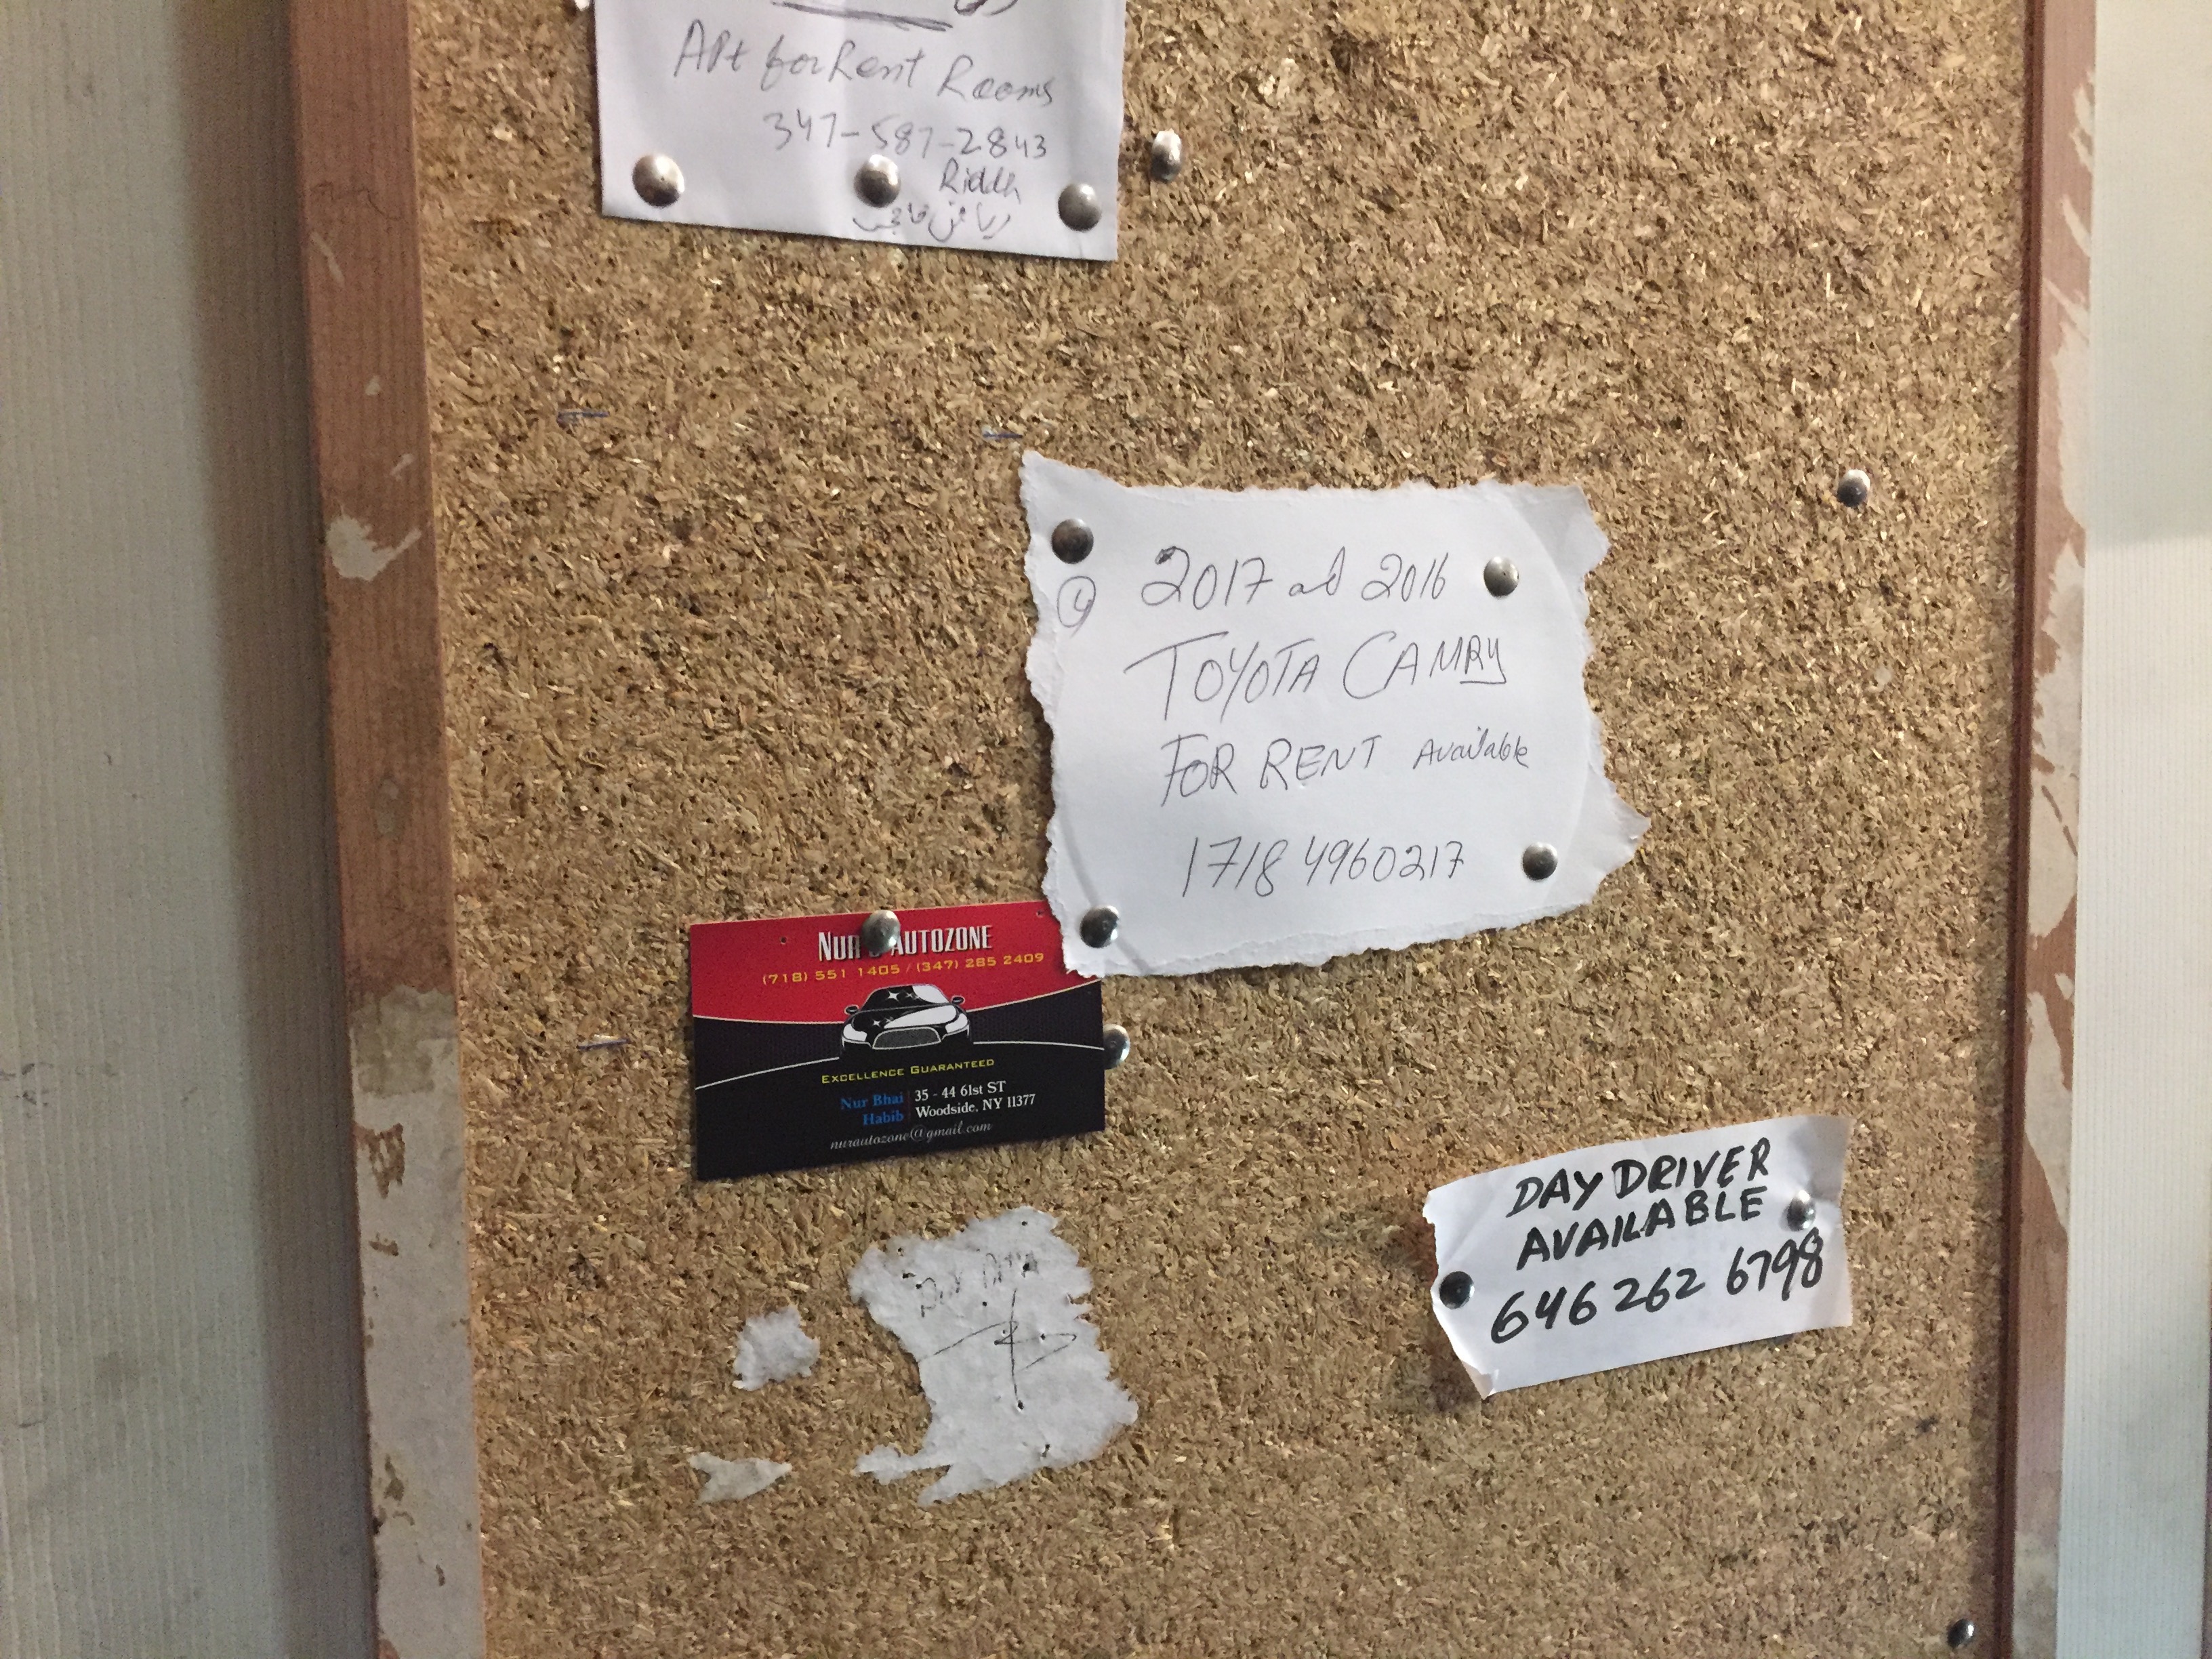 Apt for Rent Rooms
347-587-2843
2017 ad 2016
TOYOTA CAMRY
FOR RENT Available
1718 4960217
NUR'S AUTOZONE
(718) 551 1405 / (347) 285 2409
EXCELLENCE GUARANTEED
Nur Bhai
Habib
35 - 44 61st ST
Woodside, NY 11377
nurautozone@gmail.com
DAY DRIVER
AVAILABLE
646 262 6798